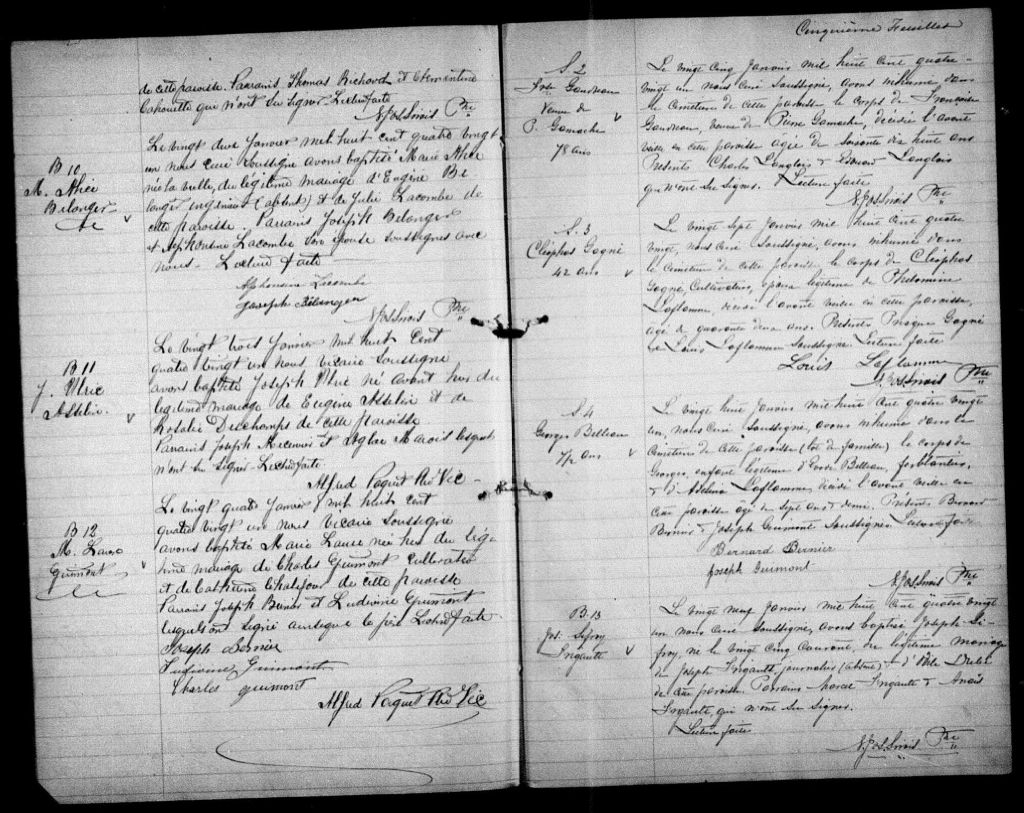 de cette paroisse. Parrains Thomas Richard et Clementine
Cahouette qui n'ont su signer Lecture faite
N. Jos Sirois Ptre
B 10
M. Alice
Belanger
Le vingt deux Janvier mil huit cent quatre vingt
un nous curé soussigné avons baptisé Marie Alice
née la veille, du légitime mariage d'Eugène Be
langer ingénieur (absent) et de Julie Lacombe de
cette paroisse Parrains Joseph Belanger
et Alphonsine Lacombe son épouse soussignés avec
nous. Lecture faite
Alphonsine Lacombe
Joseph Bélanger
N Jos Sirois Ptre
B 11
J. Ulric
Asselin
Le vingt trois Janvier mil huit Cent
quatre vingt un nous vicaire Soussigné
avons baptisé Joseph Ulric né avant hier du
légitime mariage de Eugène Asselin et de
Rosalie Deschamps de cette paroisse
Parrains Joseph Mercier et Aglae Marois lesquels
n'ont su signer. Lecture faite
Alfred Paquet Ptre Vic
B 12
M. Laure
Guimont
Le vingt quatre Janvier mil huit cent
quatre vingt un nous vicaire soussigné
avons baptisé Marie Laure née hier du légi
time mariage de Charles Guimont Cultivateur
et de Catherine Chalifour de cette paroisse
Parrains Joseph Bernier et Ludivine Guimont
lesquels ont signé ainsi que le père Lecture faite
Joseph Bernier
Ludivine Guimont
Charles guimont
Alfred Paquet Ptre Vic
Cinquième Feuillet
S. 2
Frse Gaudreau
Veuve de
P. Gamache
78 ans
Le vingt cinq Janvier mil huit cent quatre-
vingt un nous curé soussigné, avons inhumé dans
le Cimetière de cette paroisse le corps de Françoise
Gaudreau, veuve de Pierre Gamache, décédée l'avant
veille en cette paroisse agée de soixante dix huit ans
Présents Charles Langlois & Edouard Langlois
qui n'ont su signer. Lecture faite
N Jos Sirois Ptre
S. 3
Cléophas Gagné
42 ans
Le vingt sept Janvier mil huit cent quatre
vingt, nous curé soussigné, avons inhumé dans
le Cimetière de cette paroisse le corps de Cléophas
Gagné, Cultivateur, époux légitime de Philomène
Laflamme, décédé l'avant veille en cette paroisse,
agé de quarante deux ans. Présents Prosper Gagné
& Louis Laflamme soussigné. Lecture faite
Louis Laflamme
N Jos Sirois Ptre
S. 4
Georges Belleau
7 1/2 ans
Le vingt huit Janvier mil huit cent quatre vingt
un, nous curé soussigné, avons inhumé dans le
Cimetière de cette paroisse (lot de famille) le corps de
Georges, enfant légitime d'Exode Belleau, ferblantier,
& d'Adelina Laflamme, décédé l'avant veille en
cette paroisse agé de sept ans & demi. Présents Bernard
Bernier & Joseph Guimont soussignés Lecture faite
Bernard Bernier
Joseph Guimont
N Jos Sirois Ptre
B. 13
Jos. Sifroy
Frigault
Le vingt neuf Janvier mil huit cent quatre vingt
un nous curé soussigné, avons baptisé Joseph Si-
froy, né le vingt cinq courant, du légitime mariage
de Joseph Frigault journalier (absent) & d'Obeline
de cette paroisse. Parrains Marcel Frigault & Anaïs
Frigault, qui n'ont su signer.
Lecture faite
N Jos Sirois Ptre